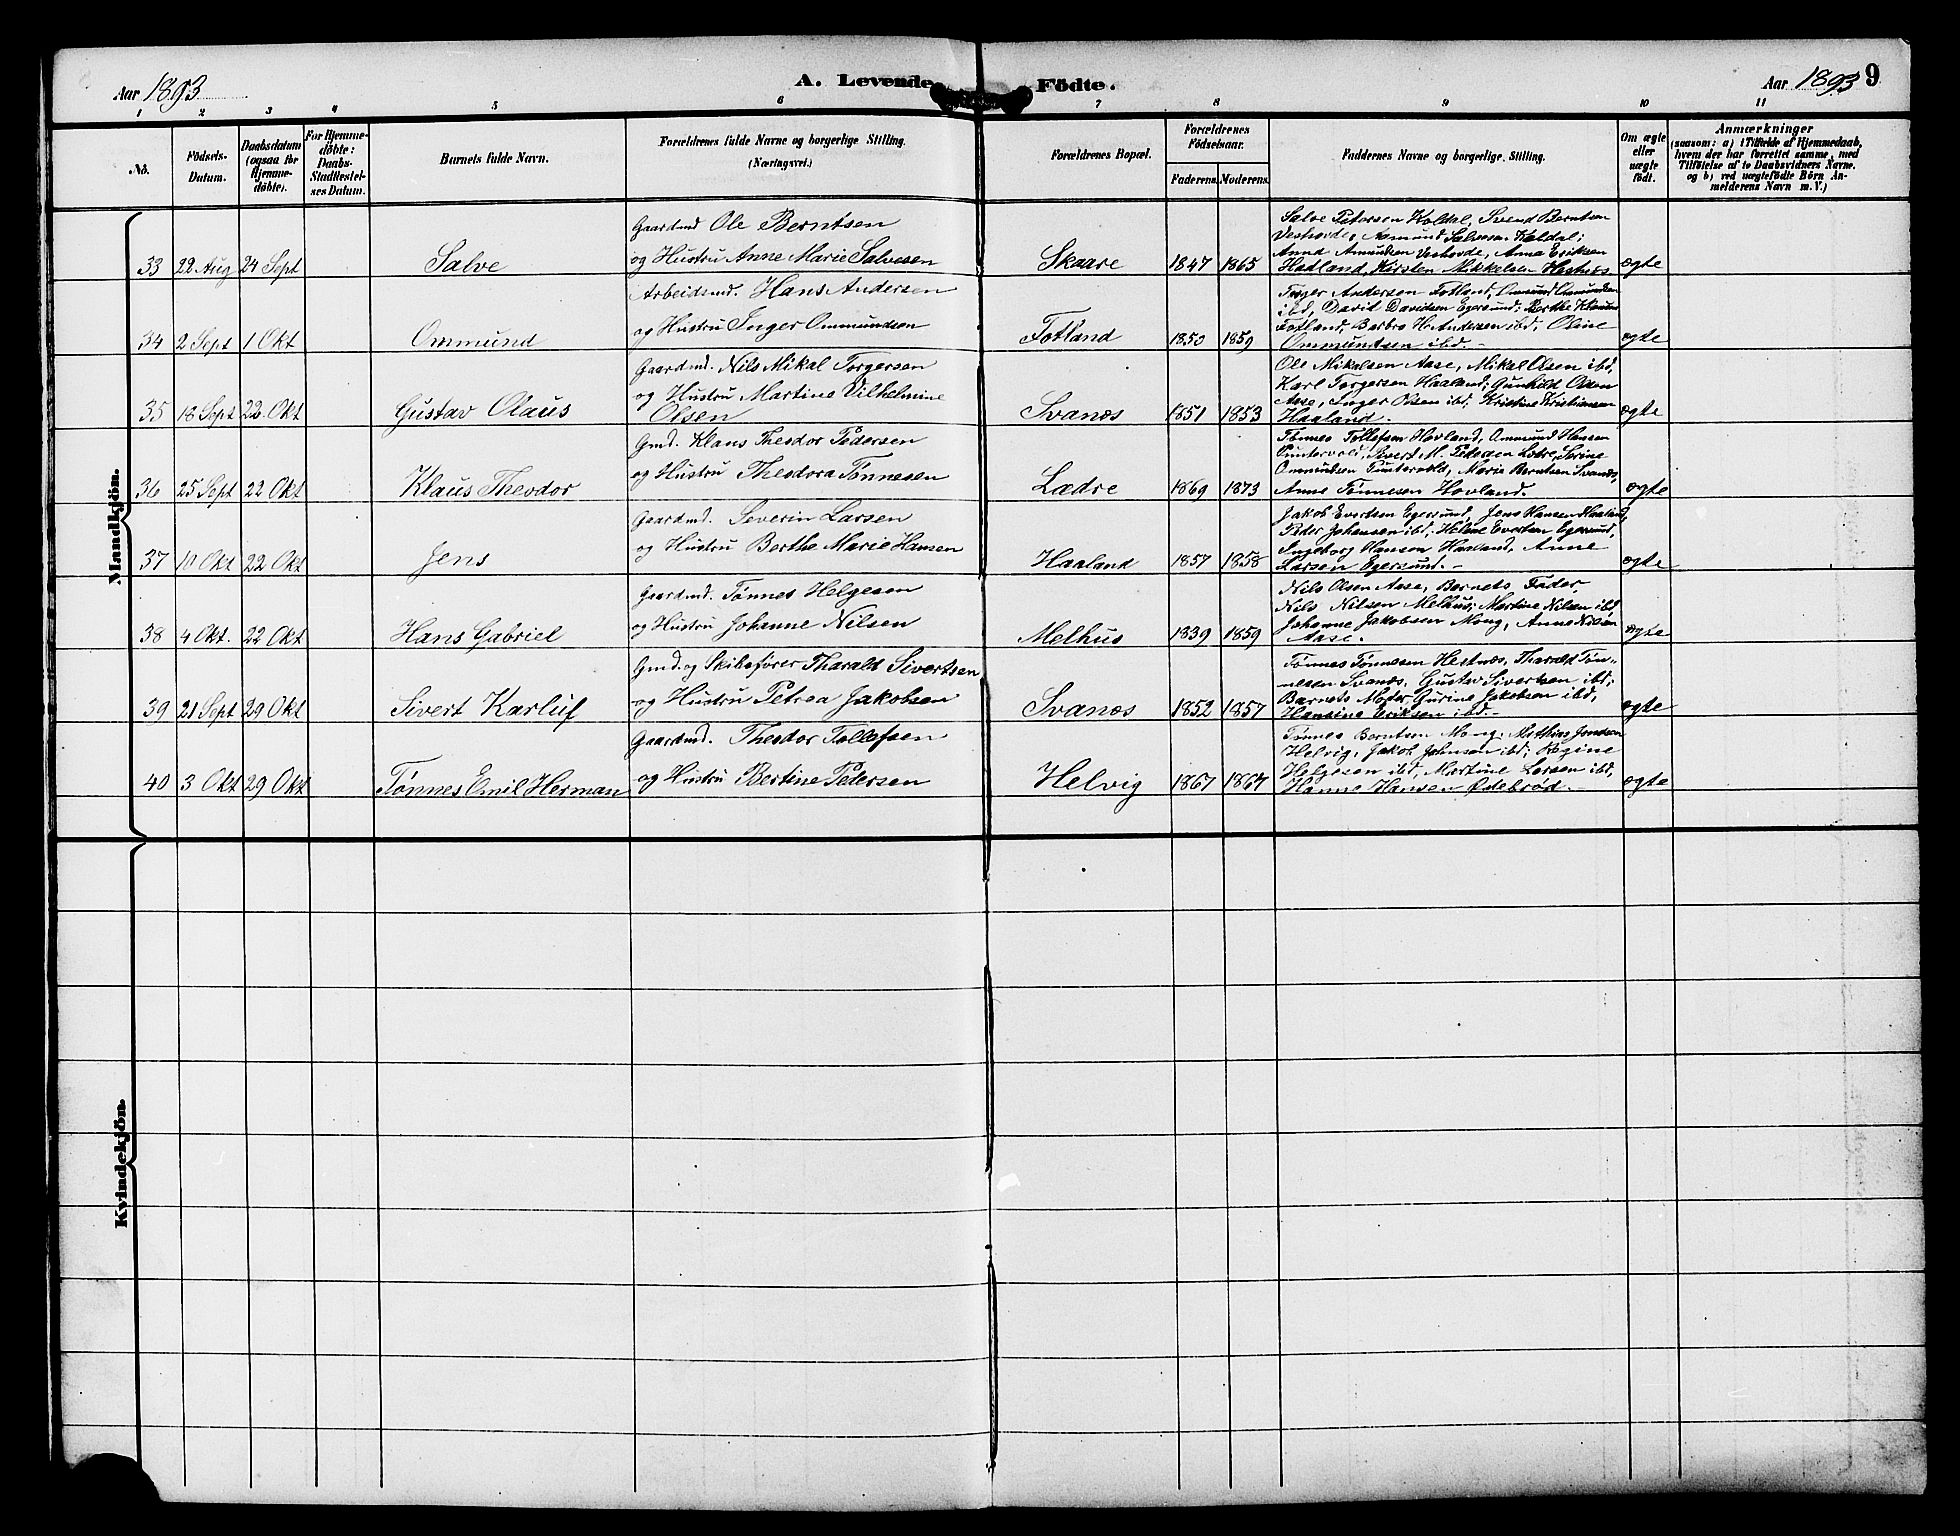 Aar 1893
A. Levende Födte.
Aar 1893
9
1 2 3 4 5 6 7 8 9 10 11
No.
Födsels-
Datum.
Daabsdatum
(ogsaa for
Hjemme-
döbte).
For Hjemme-
döbte:
Daabs-
Stadfæstel-
ses Datum.
Barnets fulde Navn.
Forældrenes fulde Navne og borgerlige Stilling.
(Næringsvei.)
Forældrenes Bopæl.
Forældrenes
Födselsaar.
Faderens. Moderens.
Faddernes Navne og borgerlige Stilling.
Om ægte
eller
uægte
födt.
Anmærkninger
(saasom: a) i Tilfælde af Hjemmedaab,
hvem der har forrettet samme, med
Tilföielse af to Daabsvidners Navne.
og b) ved uægtefödte Börn An-
melderens Navn m. V.)
Mandkjön.
33 22 Aug 24 Sept Salve
Gaardmd Ole Berntsen
og Hustru Anne Marie Salvesen
Skaare 1847 1865
Salve Petersen Koldal, Svend Berntsen
Vesthovde, Aamund Salvesen Koldal;
Anna Amundsen Vesthovde, Anna Eriksen
Hadland, Kirsten Mikkelsen Hestnæs.
ægte
34 2 Sept 1 Okt Ommund
Arbeidsmd. Hans Andersen
og Hustru Inger Ommundsen
Fotland 1850 1859
Torger Andersen Fotland, Ommund Ommundsen
ibd, David Davidsen Egersund; Berthe Klausen
Fotland, Barbro H. Andersen ibd, Oline
Ommundsen ibd.-
ægte
35 18 Sept 22 Okt Gustav Olaus
Gaardmd. Nils Mikal Torgersen
og Hustru Martine Vilhelmine
Olsen
Svanæs 1851 1853
Ole Mikalsen Aase, Mikal Olsen ibd,
Karl Torgersen Haaland; Gunhild Olsen
Aase, Inger Olsen ibd; Kristine Kristiansen
Haaland.-
ægte
36 25 Sept 22 Okt Klaus Theodor
Gmd. Klaus Theodor Pedersen
og Hustru Theodora Tønnesen
Lædre 1869 1873
Tønnes Tollefsen Hovland, Ommund Hansen
Puntervold, Sivert M. Petersen Lædre, Serine
Ommundsen Puntervold, Marie Berntsen Svanæs,
Anne Tønnesen Hovland.
ægte
37 10 Okt 22 Okt Jens
Gaardmd. Severin Larsen
og Hustru Berthe Marie Hansen
Haaland 1857 1858
Jakob Evertsen Egersund, Jens Hansen Haaland,
Peder Johansen ibd, Helene Evertsen Egersund,
Ingeborg Hansen Haaland, Anne
Larsen Egersund.-
ægte
38 4 Okt. 22 Okt Hans Gabriel
Gaardmd. Tønnes Helgesen
og Hustru Johanne Nilsen
Melhus 1839 1859
Nils Olsen Aase, Barnets Fader,
Nils Nilsen Melhus; Martine Nilsen ibd,
Johanne Jakobsen Mong, Anne Nilsen
Aase.
ægte
39 21 Sept 29 Okt Sivert Karluf
Gmd. og Skibsfører Tharald Sivertsen
og Hustru Petrea Jakobsen
Svanæs 1852 1857
Tønnes Tønnesen Hestnæs, Tharald Tøn-
nesen Svanæs, Gustav Sivertsen ibd;
Barnets Moder, Gurine Jakobsen ibd,
Hansine Eriksen ibd.-
ægte
40 3 Okt 29 Okt Tønnes Emil Herman
Gaardmd. Theodor Tollefsen
og Hustru Bertine Pedersen
Helvig 1867 1867
Tønnes Berntsen Mong, Mathias Jonassen
Helvig, Jakob Johnsen ibd; Regine
Helgesen ibd, Martine Larsen ibd,
Hanne Hansen Ødebrød.-
ægte
Kvindekjön.